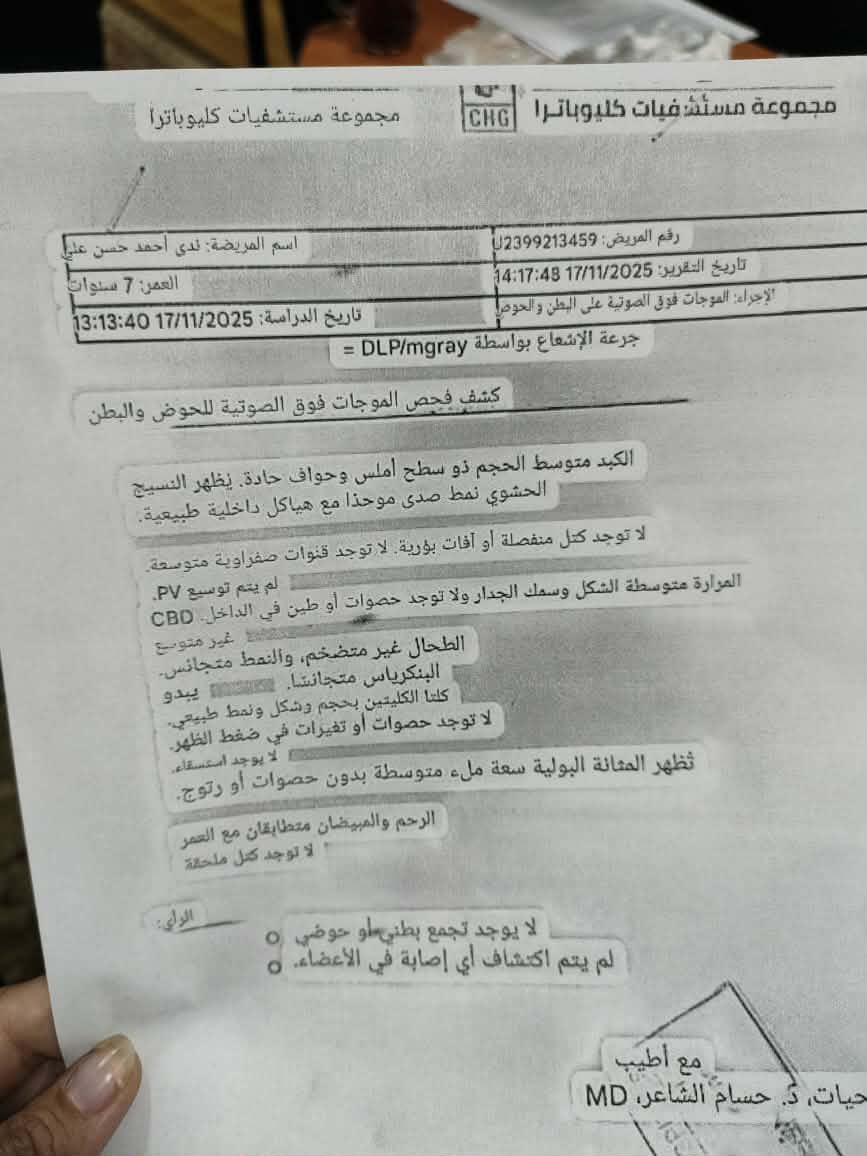 مجموعة مستشفيات كليوباترا
CHG
مجموعة مستشفيات كليوباترا
رقم المريض: J2399213459
اسم المريضة: ندى أحمد حسن علي
تاريخ التقرير: 17/11/2025 14:17:48
العمر: 7 سنوات
الإجراء: الموجات فوق الصوتية على البطن والحوض
تاريخ الدراسة: 17/11/2025 13:13:40
جرعة الإشعاع بواسطة DLP/mgray =
كشف فحص الموجات فوق الصوتية للحوض والبطن
الكبد متوسط الحجم ذو سطح أملس وحواف حادة. يُظهر النسيج
الحشوي نمط صدى موحدًا مع هياكل داخلية طبيعية.
لا توجد كتل منفصلة أو آفات بؤرية. لا توجد قنوات صفراوية متوسعة.
لم يتم توسيع PV.
المرارة متوسطة الشكل وسمك الجدار ولا توجد حصوات أو طين في الداخل. CBD
غير متوسع
الطحال غير متضخم، والنمط متجانس.
يبدو البنكرياس متجانسًا.
كلتا الكليتين بحجم وشكل ونمط طبيعي.
لا توجد حصوات أو تغيرات في ضغط الظهر.
لا يوجد استسقاء.
تُظهر المثانة البولية سعة ملء متوسطة بدون حصوات أو رتوج.
الرحم والمبيضان متطابقان مع العمر
لا توجد كتل ملحقة
الرأي:
لا يوجد تجمع بطني أو حوضي
لم يتم اكتشاف أي إصابة في الأعضاء.
مع أطيب
حيات، د. حسام الشاعر، MD